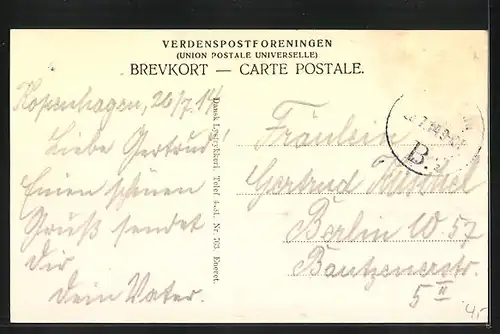 VERDENSPOSTFORENINGEN
(UNION POSTALE UNIVERSELLE)
BREVKORT — CARTE POSTALE.
Kopenhagen, 26/7. 14
Liebe Gertrud!
Einen schönen
Gruß sendet
dir
Dein Vater.
Dansk Lystrykkeri. Telef 4541. Nr 703. Eneret.
Fräulein
Gertrud
Berlin W. 57
Bautzenerstr.
5 II
B.